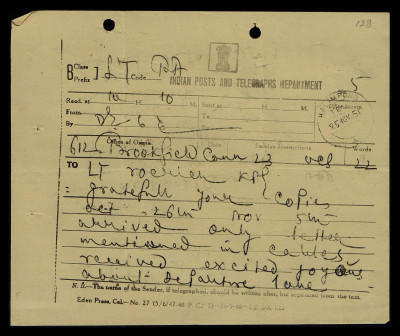 128
B Class Prefix LT Code PA
INDIAN POSTS AND TELEGRAPHS DEPARTMENT
5
Recd. at 10 H. 10 M. Sent at H. M.
From To
By By
Office of Origin Words
612 Brookfield Conn 23 22
TO LT
gratefull your copies
oct 26th nov 5th
arrived only letter
mentioned in cables
received excited joyous
about departure love
N.B.—The name of the Sender, if telegraphed, should be written after, but separated from the text.
Eden Press, Cal.—No. 27 (5/6/47-48